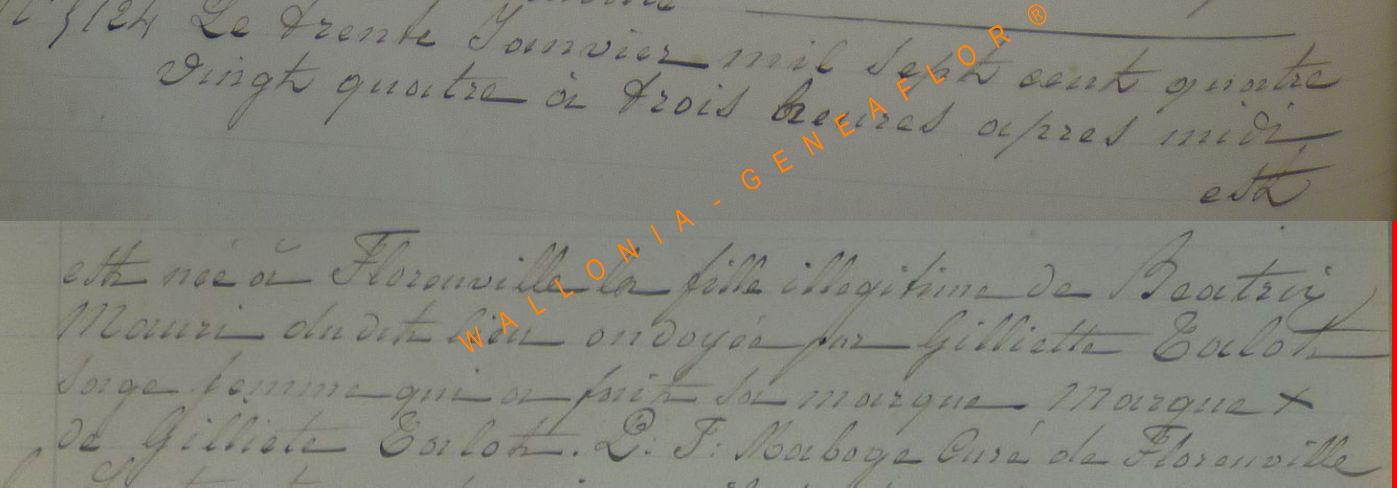 5124 Le trente Janvier mil sept cent quatre
vingt quatre à trois heures apres midi
est
est née à Florenville la fille illegitime de Beatrix
Mauri dudit lieu ondoyée par Gilliette Talot
sage femme qui a fait sa marque Marque X
de Gilliete Talot. L: F: Maboge Curé de Florenville
WALLONIA - GENEAFLOR ®